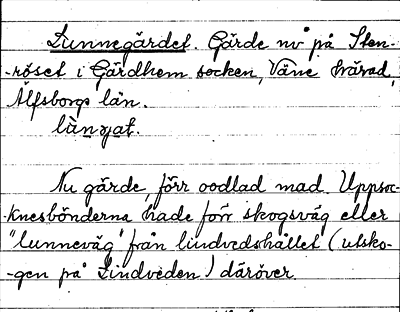 Lunnegärdet. Gärde nv på Sten-
-röset i Gärdhem socken, Väne härad,
Älfsborgs län.
lùnɣat.
Nu gärde, förr oodlad mad. Uppsoc-
knesbönderna hade förr skogsväg eller
"lunneväg" från lindvedshållet (utsko-
-gen på Lindveden) däröver.